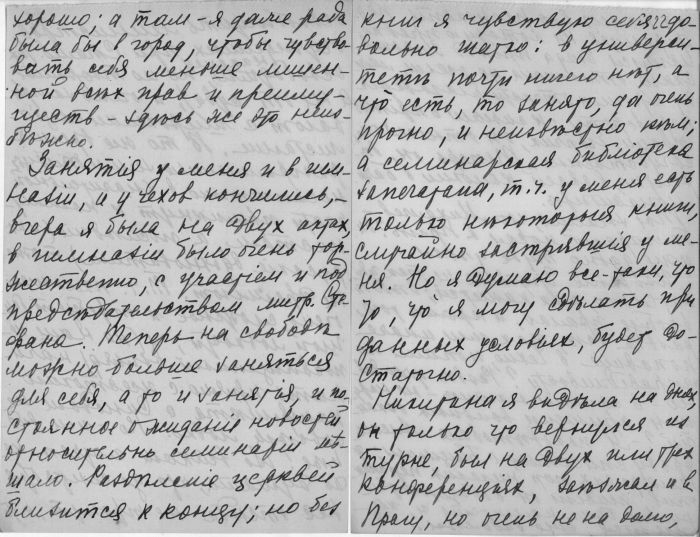 хорошо; а там - я даже рада
была бы в город, чтобы чувство-
вать себя меньше лишен-
ной всех прав и преиму-
ществ - здесь же это неиз-
бежно.
Занятія у меня и в гим-
назіи, и у чехов кончились, -
вчера я была на двух актах,
в гимназіи было очень тор-
жественно, с участіем и под
предсѣдательством митр. Сте-
фана. Теперь на свободѣ
можно больше заняться
для себя, а то и занятія, и по-
стоянное ожиданіе новостей
относительнѣ семинаріи мѣ-
шало. Раздѣленіе церквей
близится к концу; но без
книг я чувствую себя до-
вольно шатко: в универси-
тетѣ почти ничего нѣт, а
что есть, то занято, да очень
прочно, и неизвѣстно кѣм;
а семинарская библіотека
запечатана, т.ч. у меня есть
только нѣкоторыя книги
случайно застрявшія у ме-
ня. Но я думаю все-таки, что
то, что я могу сдѣлать при
данных условіях, будет до-
статочно.
Никитина я видѣла на днях
он только что вернулся из
турнэ, был на двух или трех
конференціях, заѣзжал и в
Прагу, но очень не на долго,